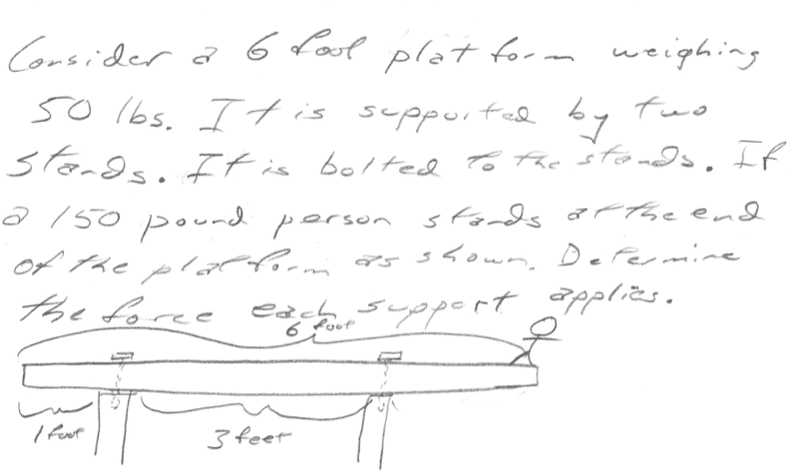 Consider a 6 foot platform weighing
50 lbs. It is supported by two
stands. It is bolted to the stands. If
a 150 pound person stands at the end
of the platform as shown. Determine
the force each support applies.
6 foot
1 foot
3 feet